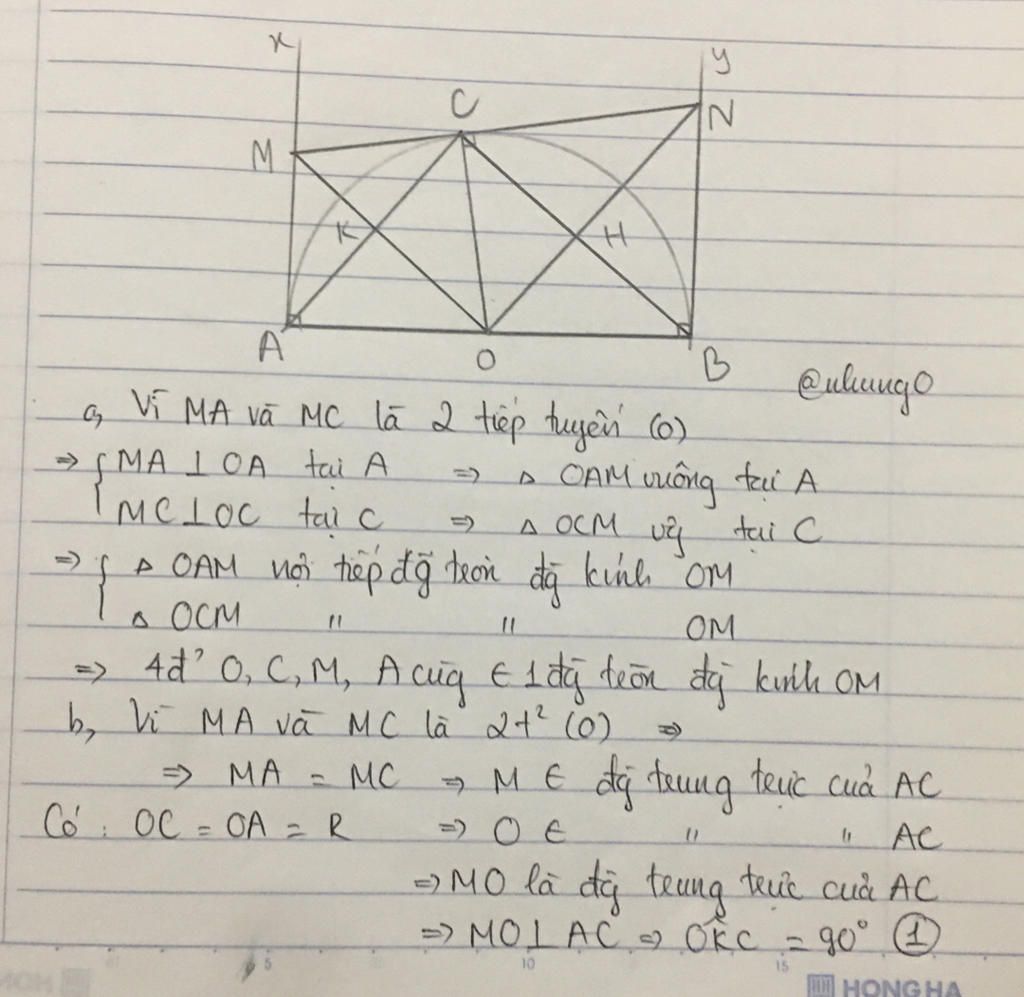 x
y
C
N
M
K
H
A
O
B
@nhung0
a, Vì MA và MC là 2 tiếp tuyến (O)
=> { MA ⊥ OA tại A => Δ OAM vuông tại A
MC ⊥ OC tại C => Δ OCM vg tại C
=> { Δ OAM nội tiếp đg tròn đg kính OM
Δ OCM " " OM
=> 4đ' O, C, M, A cùg ∈ 1 đg tròn đg kính OM
b, Vì MA và MC là 2t² (O) =>
=> MA = MC => M ∈ đg trung trực của AC
Có : OC = OA = R => O ∈ " " AC
=> MO là đg trung trực của AC
=> MO ⊥ AC => OK̂C = 90° ①
5 10 15
HONG HA